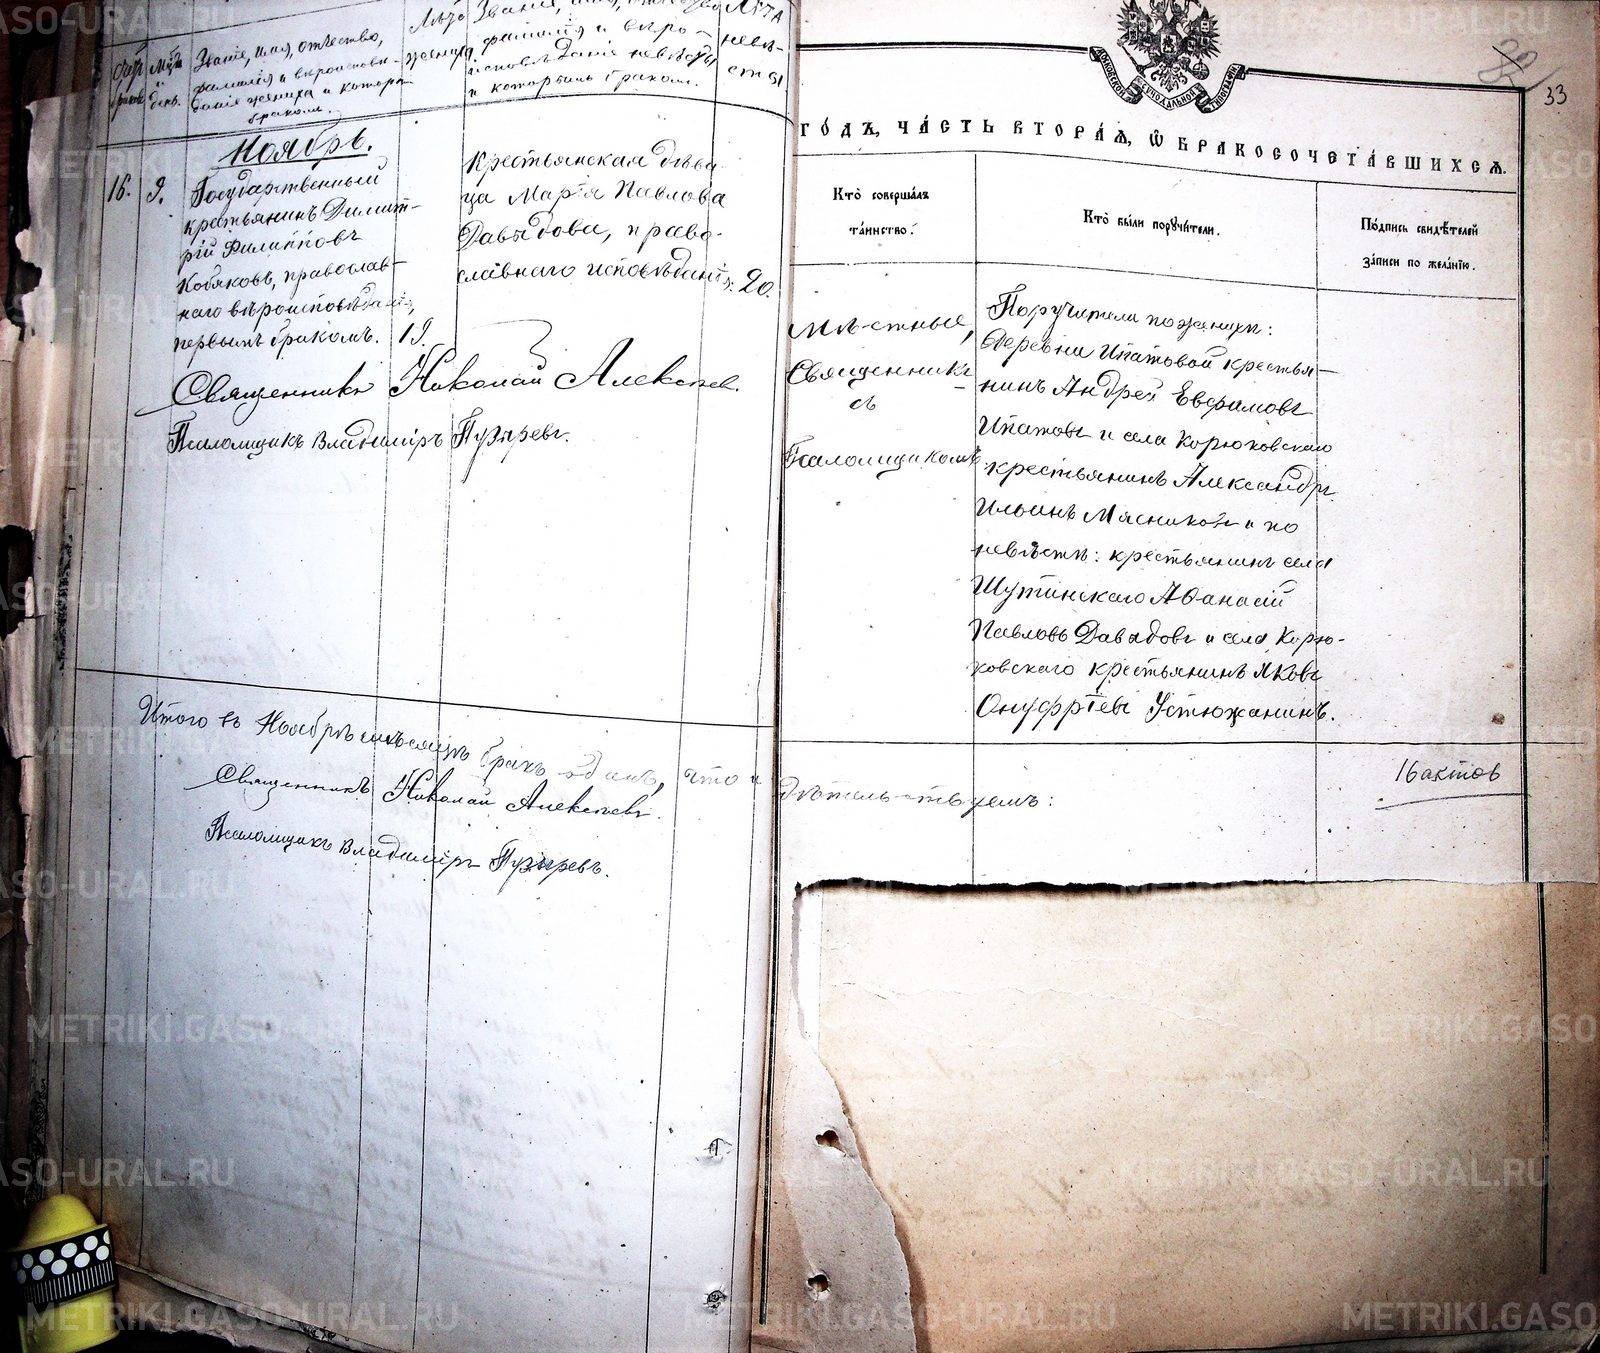 Счетъ браковъ.
Мѣсяцъ и день.
Званіе, имя, отчество,
фамилія и вѣроисповѣ-
даніе жениха и которымъ
бракомъ.
Лѣта
жениха.
Званіе, имя, отчество,
фамилія и вѣро-
исповѣданіе невѣсты
и которымъ бракомъ.
Лѣта
невѣ-
сты
Ноябрь.
16.
9.
Государственный
крестьянинъ Димит-
рій Филипповъ
Кобяковъ, православ-
наго вѣроисповѣданія,
первымъ бракомъ.
19.
Крестьянская дѣви-
ца Марія Павлова
Давыдова, право-
славнаго исповѣданія.
20.
Священникъ Николай Алексѣев.
Псаломщикъ Владиміръ Пузыревъ.
Итого въ Ноябрѣ мѣсяцѣ бракъ одинъ, что и
Священникъ Николай Алексѣевъ.
Псаломщикъ Владиміръ Пузыревъ.
МОСКОВСКОЙ СѴНОДАЛЬНОЙ ТИПОГРАФІИ
33
ГОДЪ, ЧАСТЬ ВТОРАЯ, Ѿ БРАКОСОЧЕТАВШИХСЯ.
Кто совершалъ
таинство:
Кто были поручители.
Подпись свидѣтелей
записи по желанію.
Мѣстные,
Священникъ
съ
Псаломщикомъ
Поручители по женихѣ:
деревни Ипатовой крестья-
нинъ Андрей Евфимовъ
Ипатовъ и села Корюковскаго
крестьянинъ Александръ
Ильинъ Мясниковъ и по
невѣстѣ: крестьянинъ села
Шутинскаго Аѳанасій
Павловъ Давыдовъ и села Корю-
ковскаго крестьянинъ Яковъ
Онуфріевъ Устюжанинъ.
дѣтельствуемъ:
16 актов
METRIKI.GASO-URAL.RU